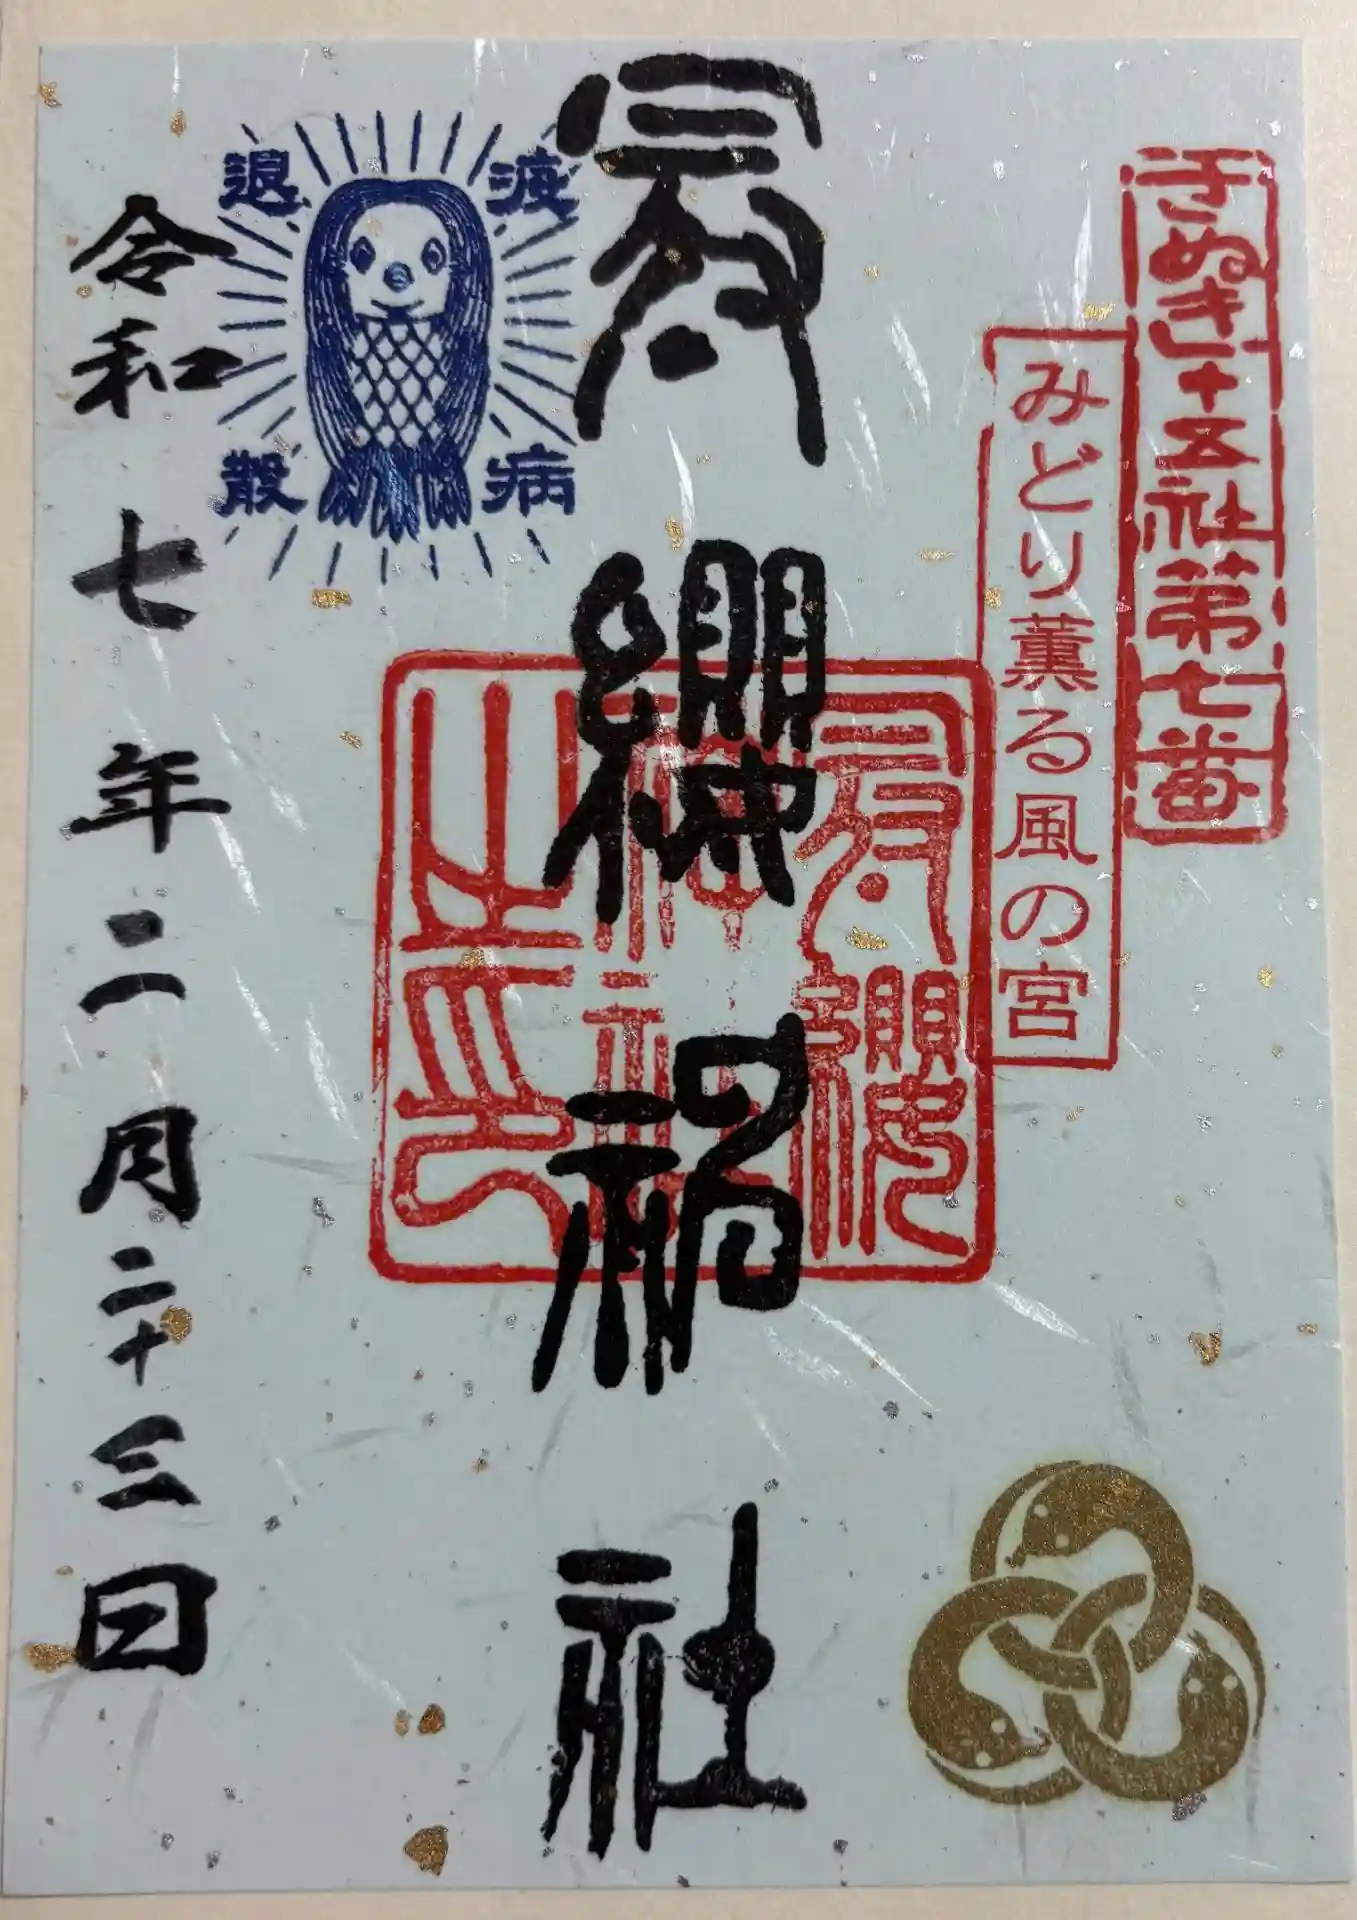 さぬき十五社第七番
みどり薫る風の宮
冠纓神社
冠纓
神社
之印
疫病
退散
令和七年二月二十三日